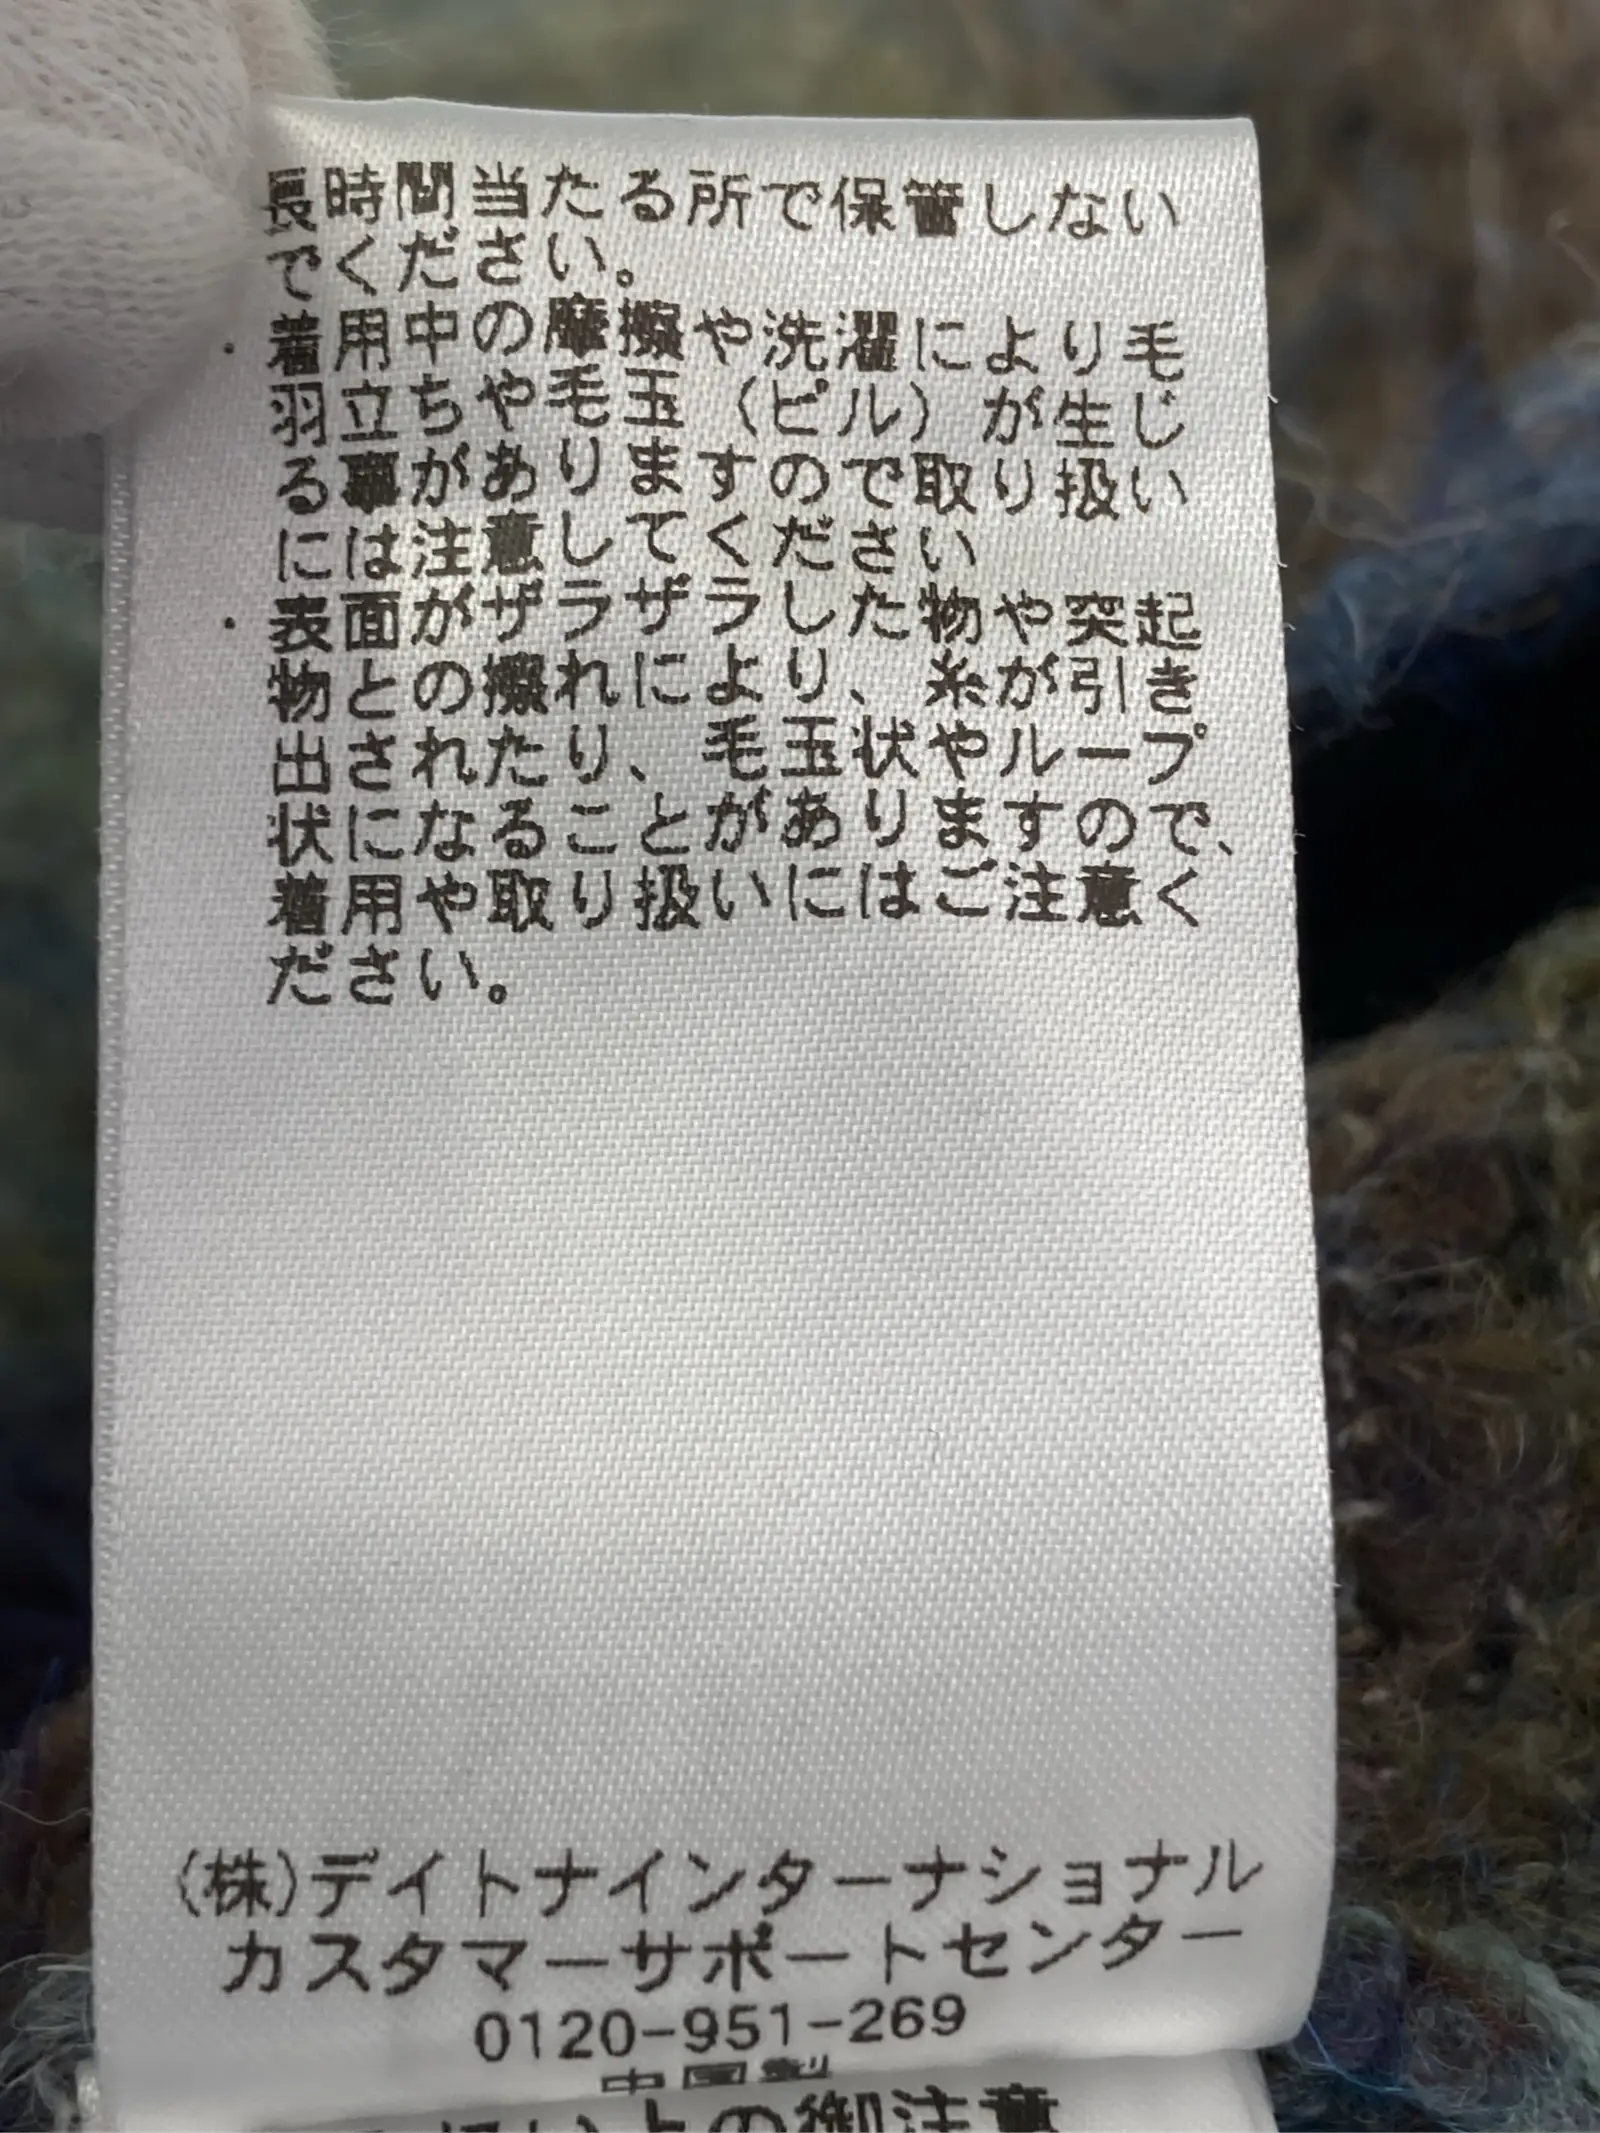 長時間当たる所で保管しない
でください。
・着用中の摩擦や洗濯により毛
羽立ちや毛玉（ピル）が生じ
る事がありますので取り扱い
には注意してください
・表面がザラザラした物や突起
物との擦れにより、糸が引き
出されたり、毛玉状やループ
状になることがありますので、
着用や取り扱いにはご注意く
ださい。
(株)デイトナインターナショナル
カスタマーサポートセンター
0120-951-269
中国製
上の御注意